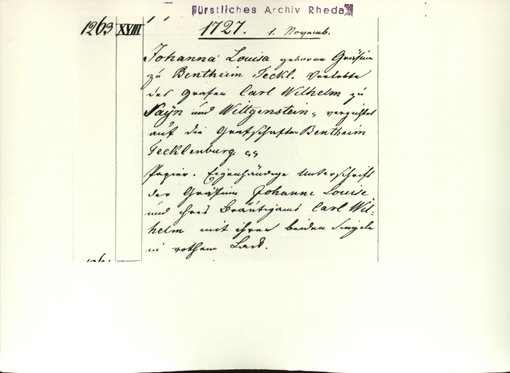 Fürstliches Archiv Rheda
1263 XVIII 1727. 1. Novemb.
Johanna Louisa geborne Gräfinn
zu Bentheim Teckl. Verlobte
des Grafen Carl Wilhelm zu
Sayn und Wittgenstein, verzichtet
auf die Grafschaften Bentheim
Tecklenburg
Papier. Eigenhändige Unterschrift
der Gräfinn Johanne Louise
und ihres Bräutigams Carl Wil=
helm mit ihren beiden Siegeln
in rothem Lack.